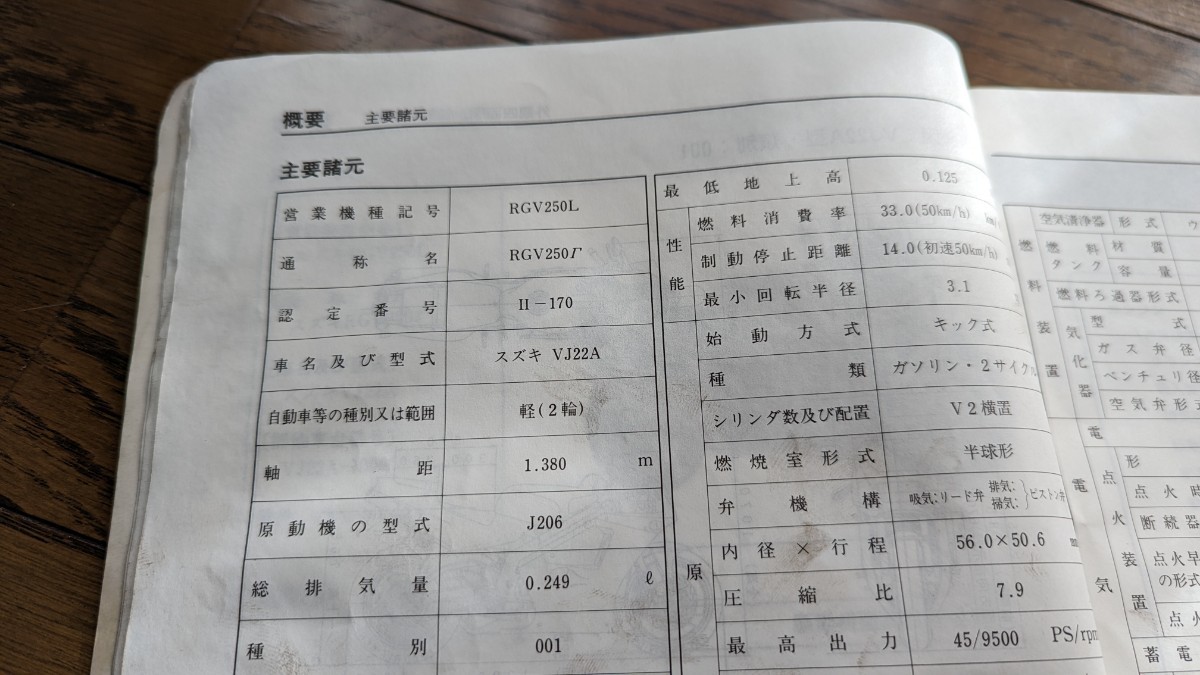 概要 主要諸元
主要諸元
営業機種記号 RGV250L
通称名 RGV250Γ
認定番号 II-170
車名及び型式 スズキ VJ22A
自動車等の種別又は範囲 軽(2輪)
軸距 1.380 m
原動機の型式 J206
総排気量 0.249 ℓ
種別 001
最低地上高 0.125
性能
燃料消費率 33.0(50km/h)
制動停止距離 14.0(初速50km/h)
最小回転半径 3.1
原
始動方式 キック式
種類 ガソリン・2サイクル
シリンダ数及び配置 V2横置
燃焼室形式 半球形
弁機構 吸気:リード弁 排気: 掃気: }ピストン弁
内径×行程 56.0×50.6
圧縮比 7.9
最高出力 45/9500 PS/rpm
燃料装置
空気清浄器 形式 ウ
燃料タンク 材質
容量
燃料ろ過器形式
気化器
型式
ガス弁径
ベンチュリ径
空気弁形式
電気
電
点火装置
形
点火時
断続器
点火早
の形式
点火
蓄電